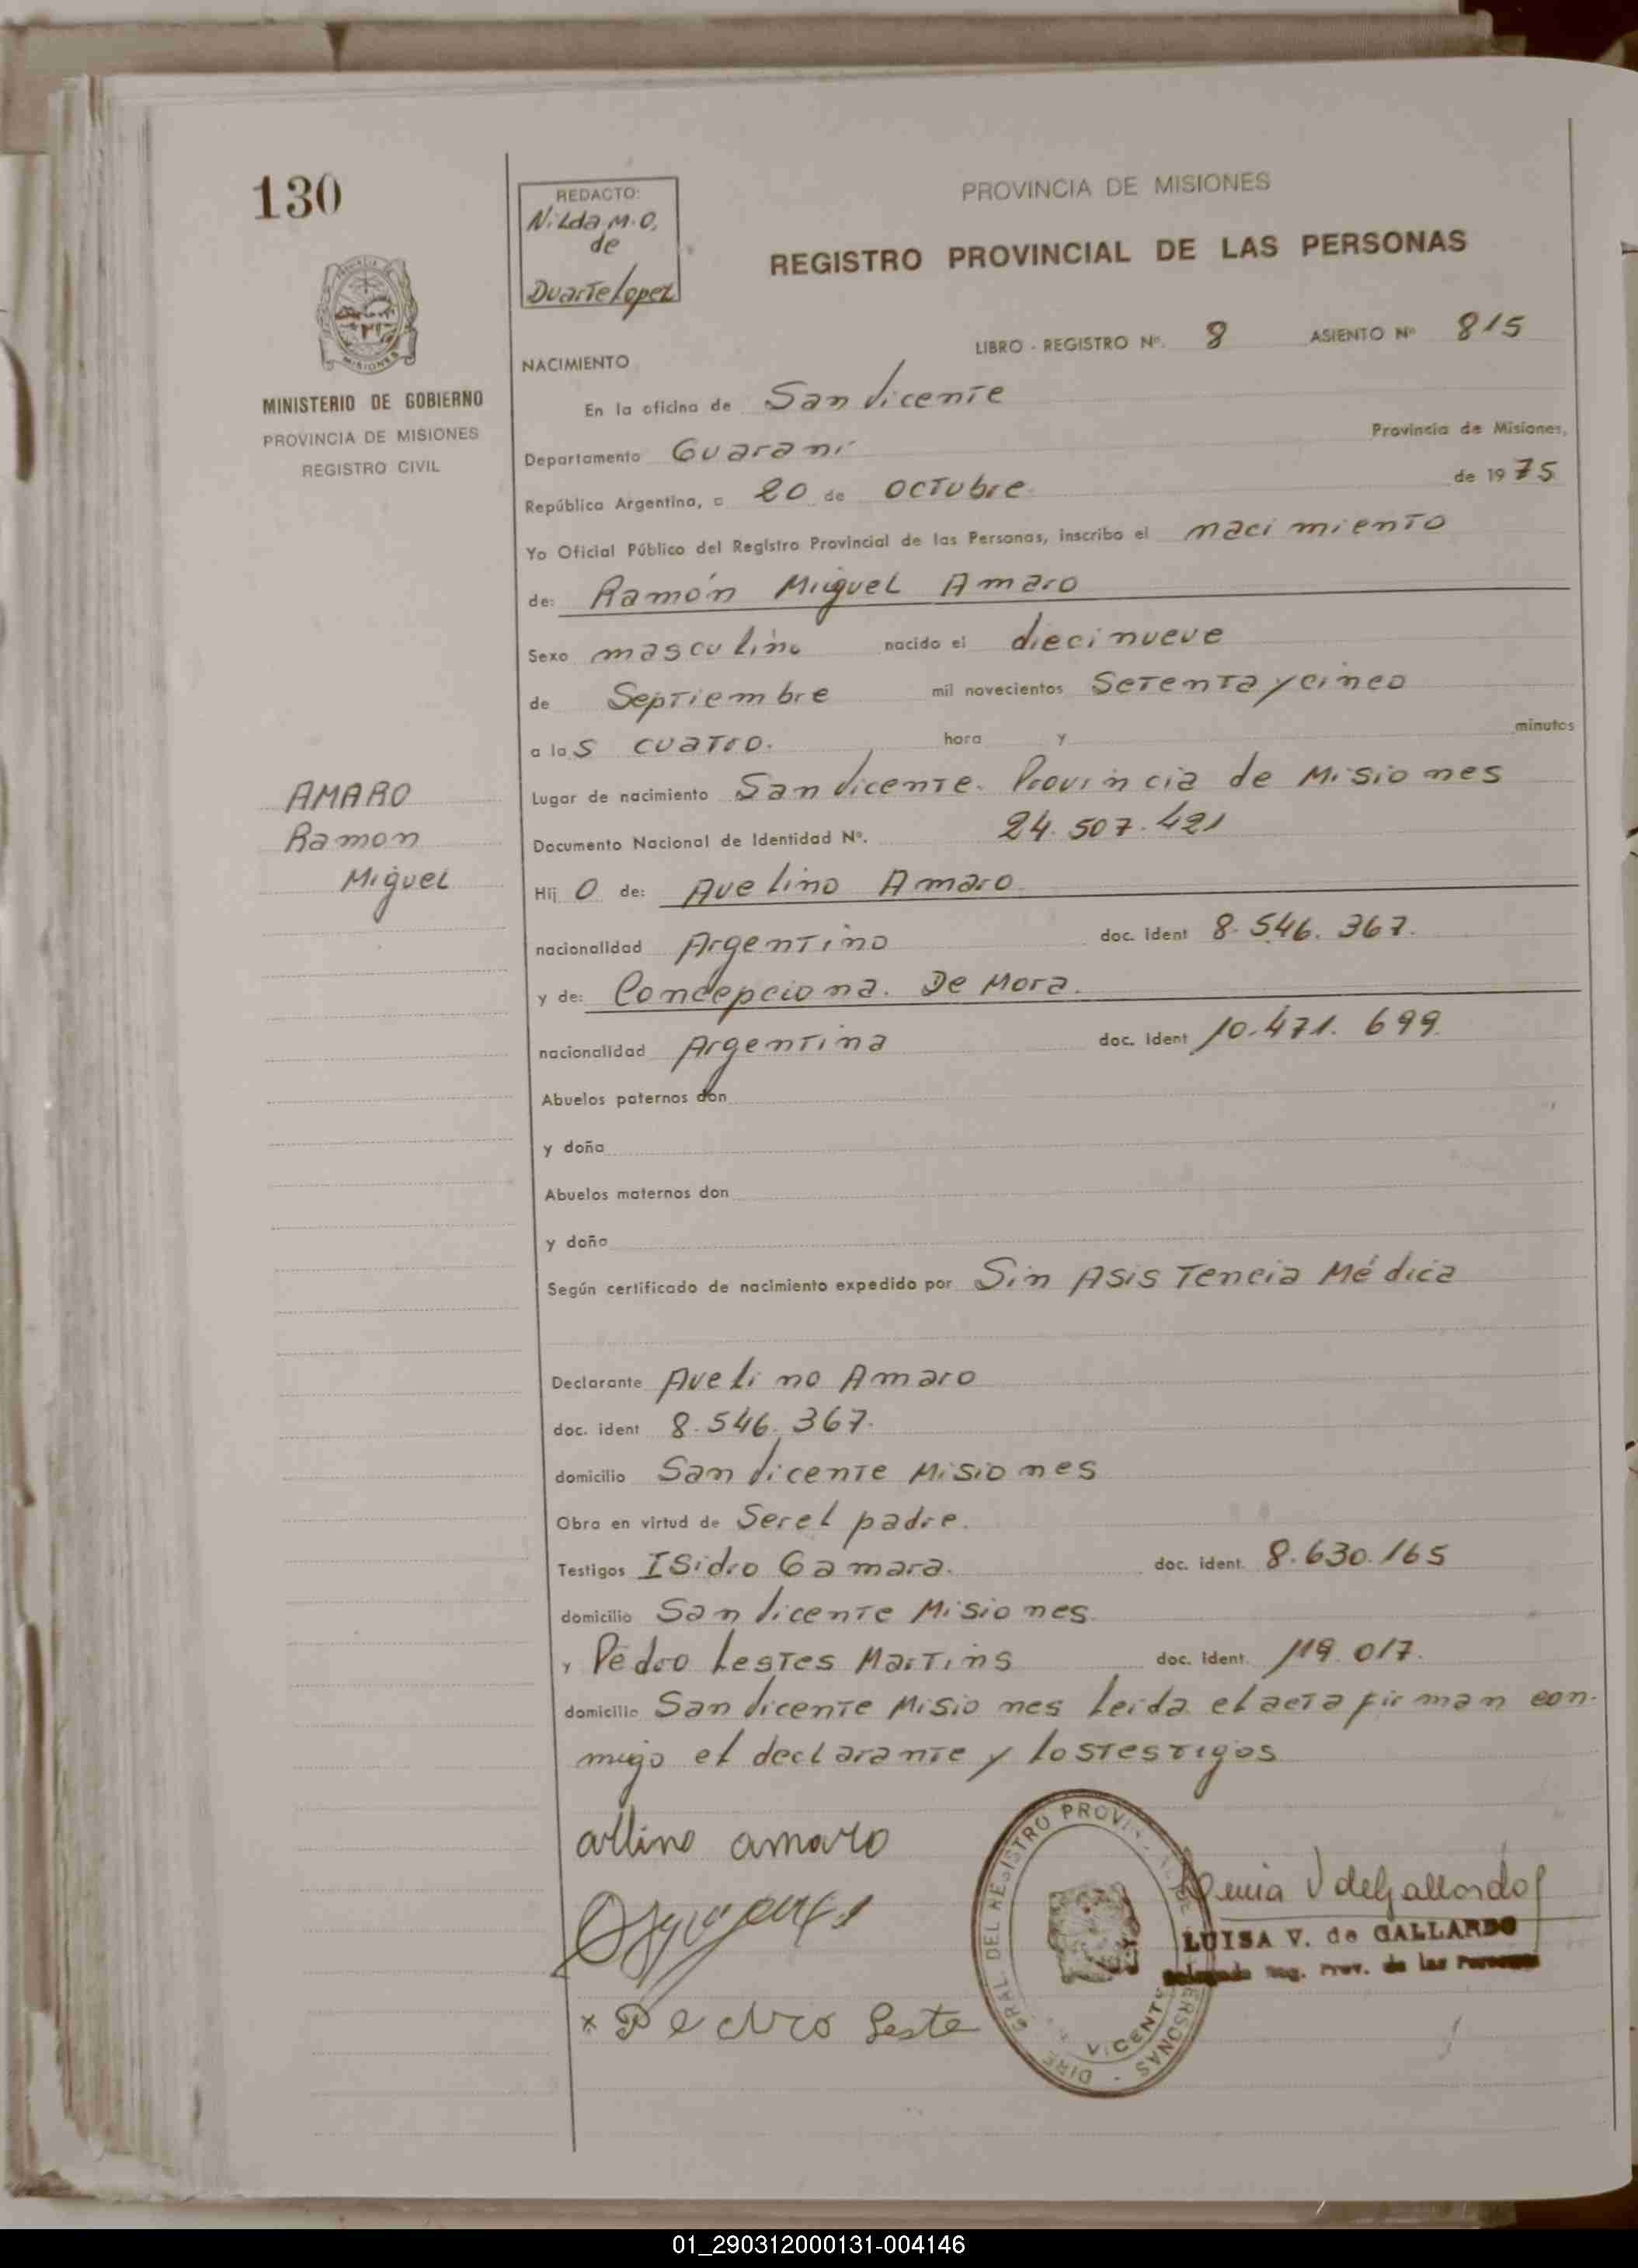 130
REDACTO:
Nilda M.O.
de
Duarte Lopez
PROVINCIA DE MISIONES
REGISTRO PROVINCIAL DE LAS PERSONAS
MISIONES
MINISTERIO DE GOBIERNO
PROVINCIA DE MISIONES
REGISTRO CIVIL
LIBRO - REGISTRO Nº. 8 ASIENTO Nº 815
NACIMIENTO
En la oficina de San Vicente
Departamento Guaraní Provincia de Misiones,
República Argentina, a 20 de Octubre de 1975
Yo Oficial Público del Registro Provincial de las Personas, inscribo el nacimiento
de: Ramón Miguel Amaro
Sexo masculino nacido el diecinueve
de Septiembre mil novecientos Setenta y cinco
a las cuatro. hora y minutos
Lugar de nacimiento San Vicente. Provincia de Misiones
Documento Nacional de Identidad Nº. 24.507.421
AMARO
Ramon
Miguel
Hijo de: Avelino Amaro
nacionalidad Argentino doc. ident 8.546.367.
y de: Concepciona. De Mora.
nacionalidad Argentina doc. ident 10.471.699
Abuelos paternos don
y doña
Abuelos maternos don
y doña
Según certificado de nacimiento expedido por Sin Asistencia Médica
Declarante Avelino Amaro
doc. ident 8.546.367.
domicilio San Vicente Misiones
Obra en virtud de Ser el padre.
Testigos Isidro Gamara. doc. ident. 8.630.165
domicilio San Vicente Misiones.
y Pedro Lestes Martins doc. ident. 119.017.
domicilio San Vicente Misiones Leida el acta firman con-
migo el declarante y los testigos
amaro
Pedro Leste
V de Gallardo
LUISA V. de GALLARDO
Delegada Reg. Prov. de las Personas
GRAL DEL REGISTRO PROVINCIAL PERSONAS
VICENTE
01_290312000131-004146